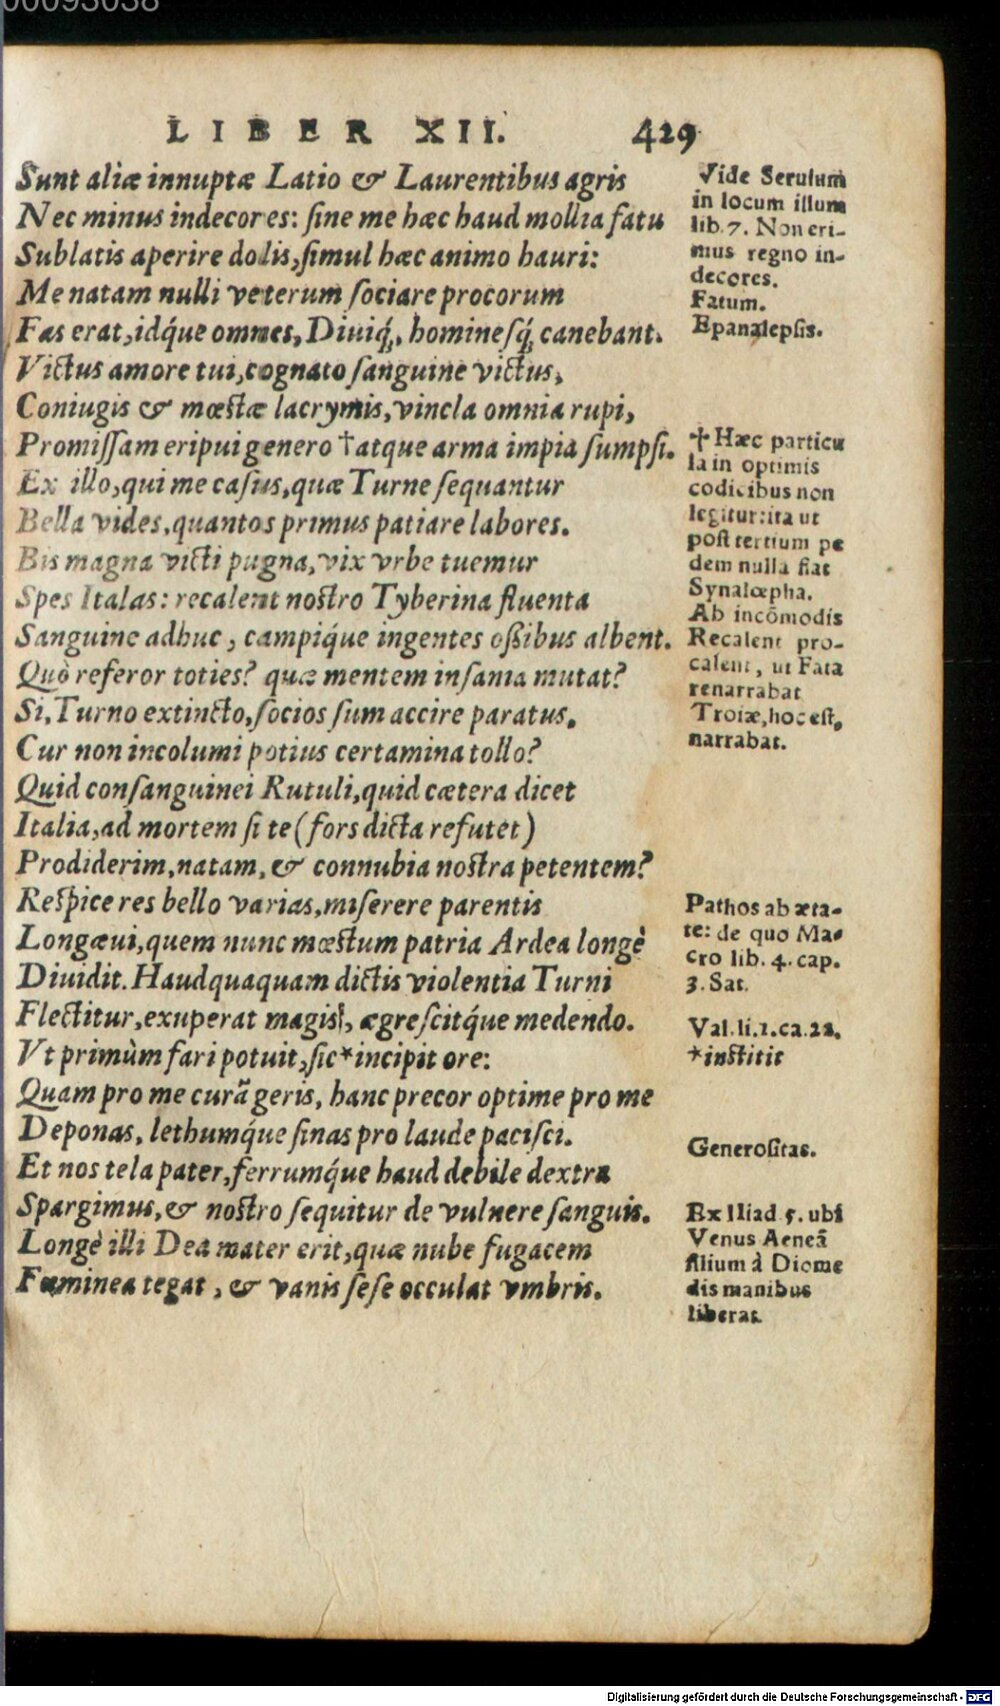 00093038
LIBER XII. 429
Sunt aliæ innuptæ Latio & Laurentibus agris
Nec minus indecores: ſine me hæc haud mollia fatu
Sublatis aperire dolis, ſimul hæc animo hauri:
Me natam nulli veterum ſociare procorum
Fas erat, idq́ue omnes, Diuiq́, homineſq́ canebant.
Victus amore tui, cognato ſanguine victus,
Coniugis & mœstæ lacrymis, vincla omnia rupi,
Promiſſam eripui genero †atque arma impia ſumpſi.
Ex illo, qui me caſus, quæ Turne ſequantur
Bella vides, quantos primus patiare labores.
Bis magna victi pugna, vix vrbe tuemur
Spes Italas: recalent nostro Tyberina fluenta
Sanguine adhuc, campiq́ue ingentes oßibus albent.
Quò referor toties? quæ mentem inſania mutat?
Si, Turno extincto, ſocios ſum accire paratus,
Cur non incolumi potius certamina tollo?
Quid conſanguinei Rutuli, quid cætera dicet
Italia, ad mortem ſi te (fors dicta refutet)
Prodiderim, natam, & connubia nostra petentem?
Reſpice res bello varias, miſerere parentis
Longæui, quem nunc mœstum patria Ardea longè
Diuidit. Haudquaquam dictis violentia Turni
Flectitur, exuperat magis, ægreſcitq́ue medendo.
Vt primùm fari potuit, ſic *incipit ore:
Quam pro me curã geris, hanc precor optime pro me
Deponas, lethumq́ue ſinas pro laude paciſci.
Et nos tela pater, ferrumq́ue haud debile dextra
Spargimus, & nostro ſequitur de vulnere ſanguis.
Longè illi Dea mater erit, quæ nube fugacem
Fœminea tegat, & vanis ſeſe occulat vmbris.
Vide Seruium
in locum illum
lib. 7. Non eri-
mus regno in-
decores.
Fatum.
Epanalepſis.
† Hæc particu
la in optimis
codicibus non
legitur: ita ut
poſt tertium pe
dem nulla fiat
Synalœpha.
Ab incõmodis
Recalent pro-
calent, ut Fata
renarrabat
Troiæ, hoc eſt,
narrabat.
Pathos ab æta-
te: de quo Ma-
cro lib. 4. cap.
3. Sat.
Val. li. 1. ca. 22.
*inſtitit
Generoſitas.
Ex Iliad 5. ubi
Venus Aeneã
filium à Diome
dis manibus
liberat.
Digitalisierung gefördert durch die Deutsche Forschungsgemeinschaft - DFG